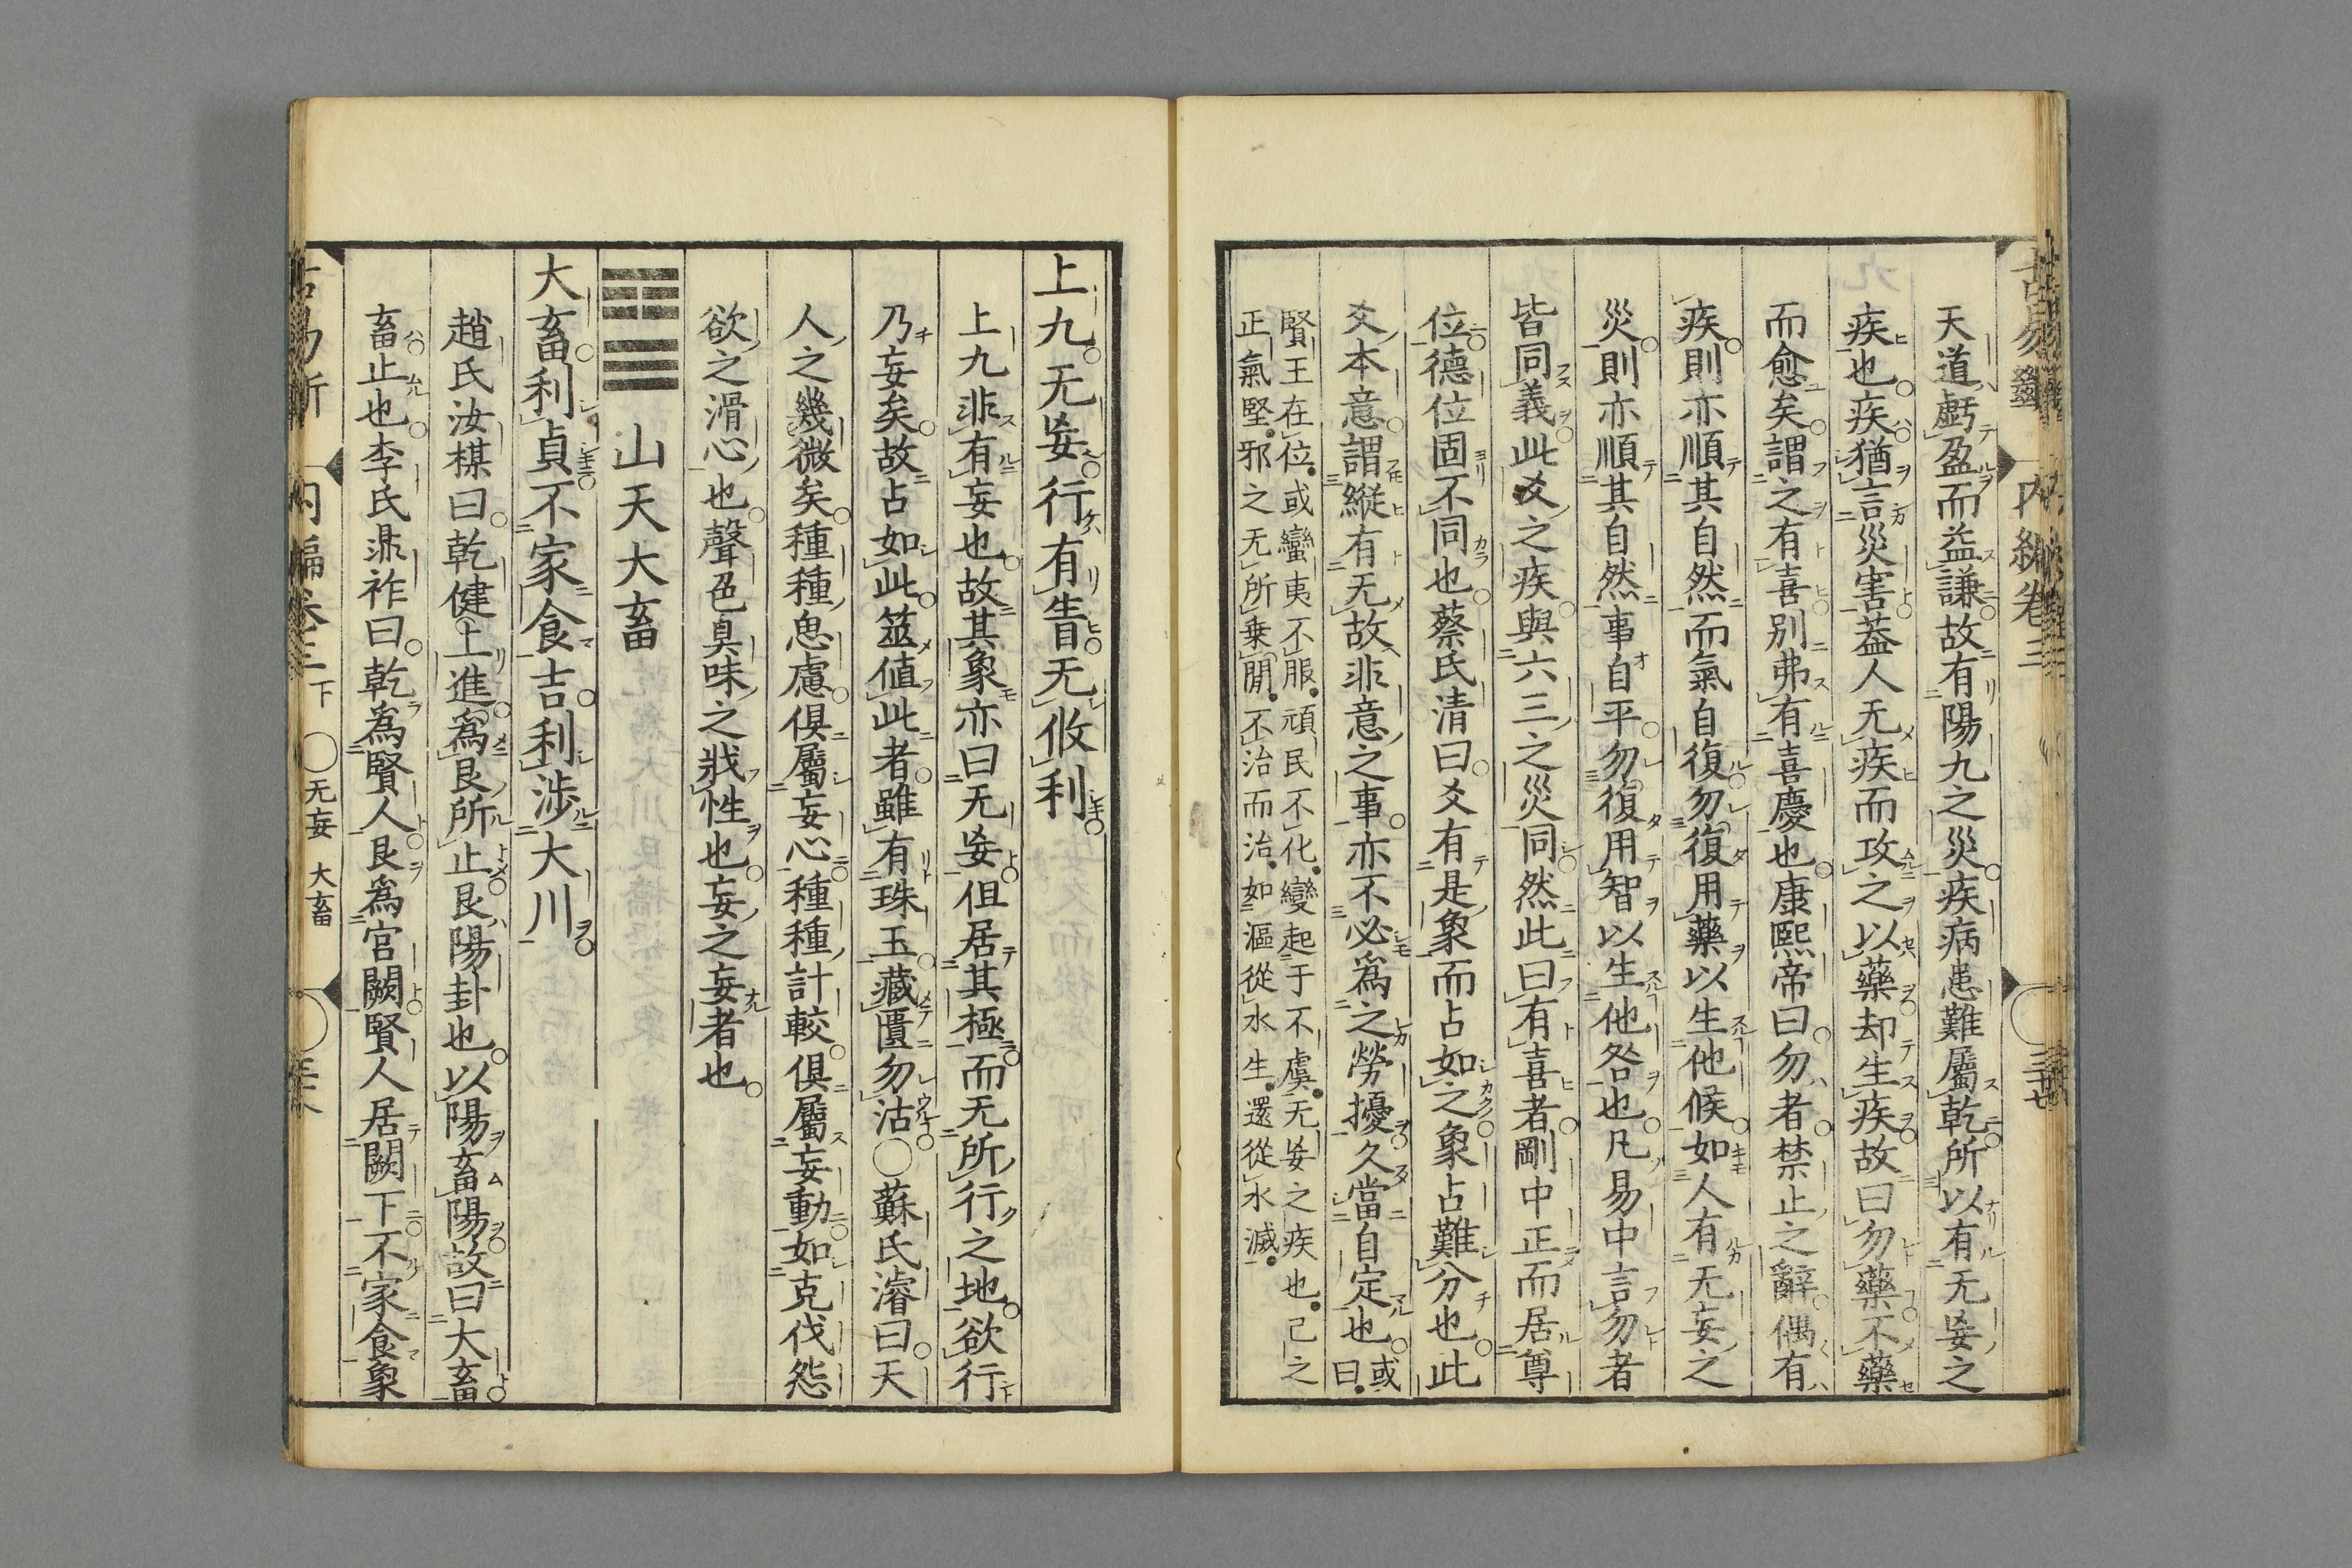 天道虧盈而益謙故有陽九之災疾病患難屬乾所以有无妄之
疾也疾猶言災害葢人无疾而攻之以藥却生疾故曰勿藥不藥
而愈矣謂之有喜別弗有喜慶也康熙帝曰勿者禁止之辭偶有
疾則亦順其自然而氣自復勿復用藥以生他候如人有无妄之
災則亦順其自然事自平勿復用智以生他咎也凡易中言勿者
皆同義此爻之疾與六三之災同然此曰有喜者剛中正而居尊
位德位固不同也蔡氏清曰爻有是象而占如之象占難分也此
爻本意謂縱有无故非意之事亦不必爲之勞擾久當自定也或曰
賢王在位或蠻夷不服頑民不化變起于不虞无妄之疾也己之
正氣堅邪之无所乗閒不治而治如漚從水生還從水滅
上九无妄行有眚无攸利
上九非有妄也故其象亦曰无妄但居其極而无所行之地欲行
乃妄矣故占如此筮値此者雖有珠玉藏匱勿沽〇蘇氏濬曰天
人之幾微矣種種思慮俱屬妄心種種計較俱屬妄動如克伐怨
欲之滑心也聲色臭味之戕性也妄之妄者也
䷙ 山天大畜
大畜利貞不家食吉利涉大川
趙氏汝楳曰乾健上進爲艮所止艮陽卦也以陽畜陽故曰大畜
畜止也李氏鼎祚曰乾爲賢人艮爲宮闕賢人居闕下不家食象
内編卷三下 〇无妄 大畜